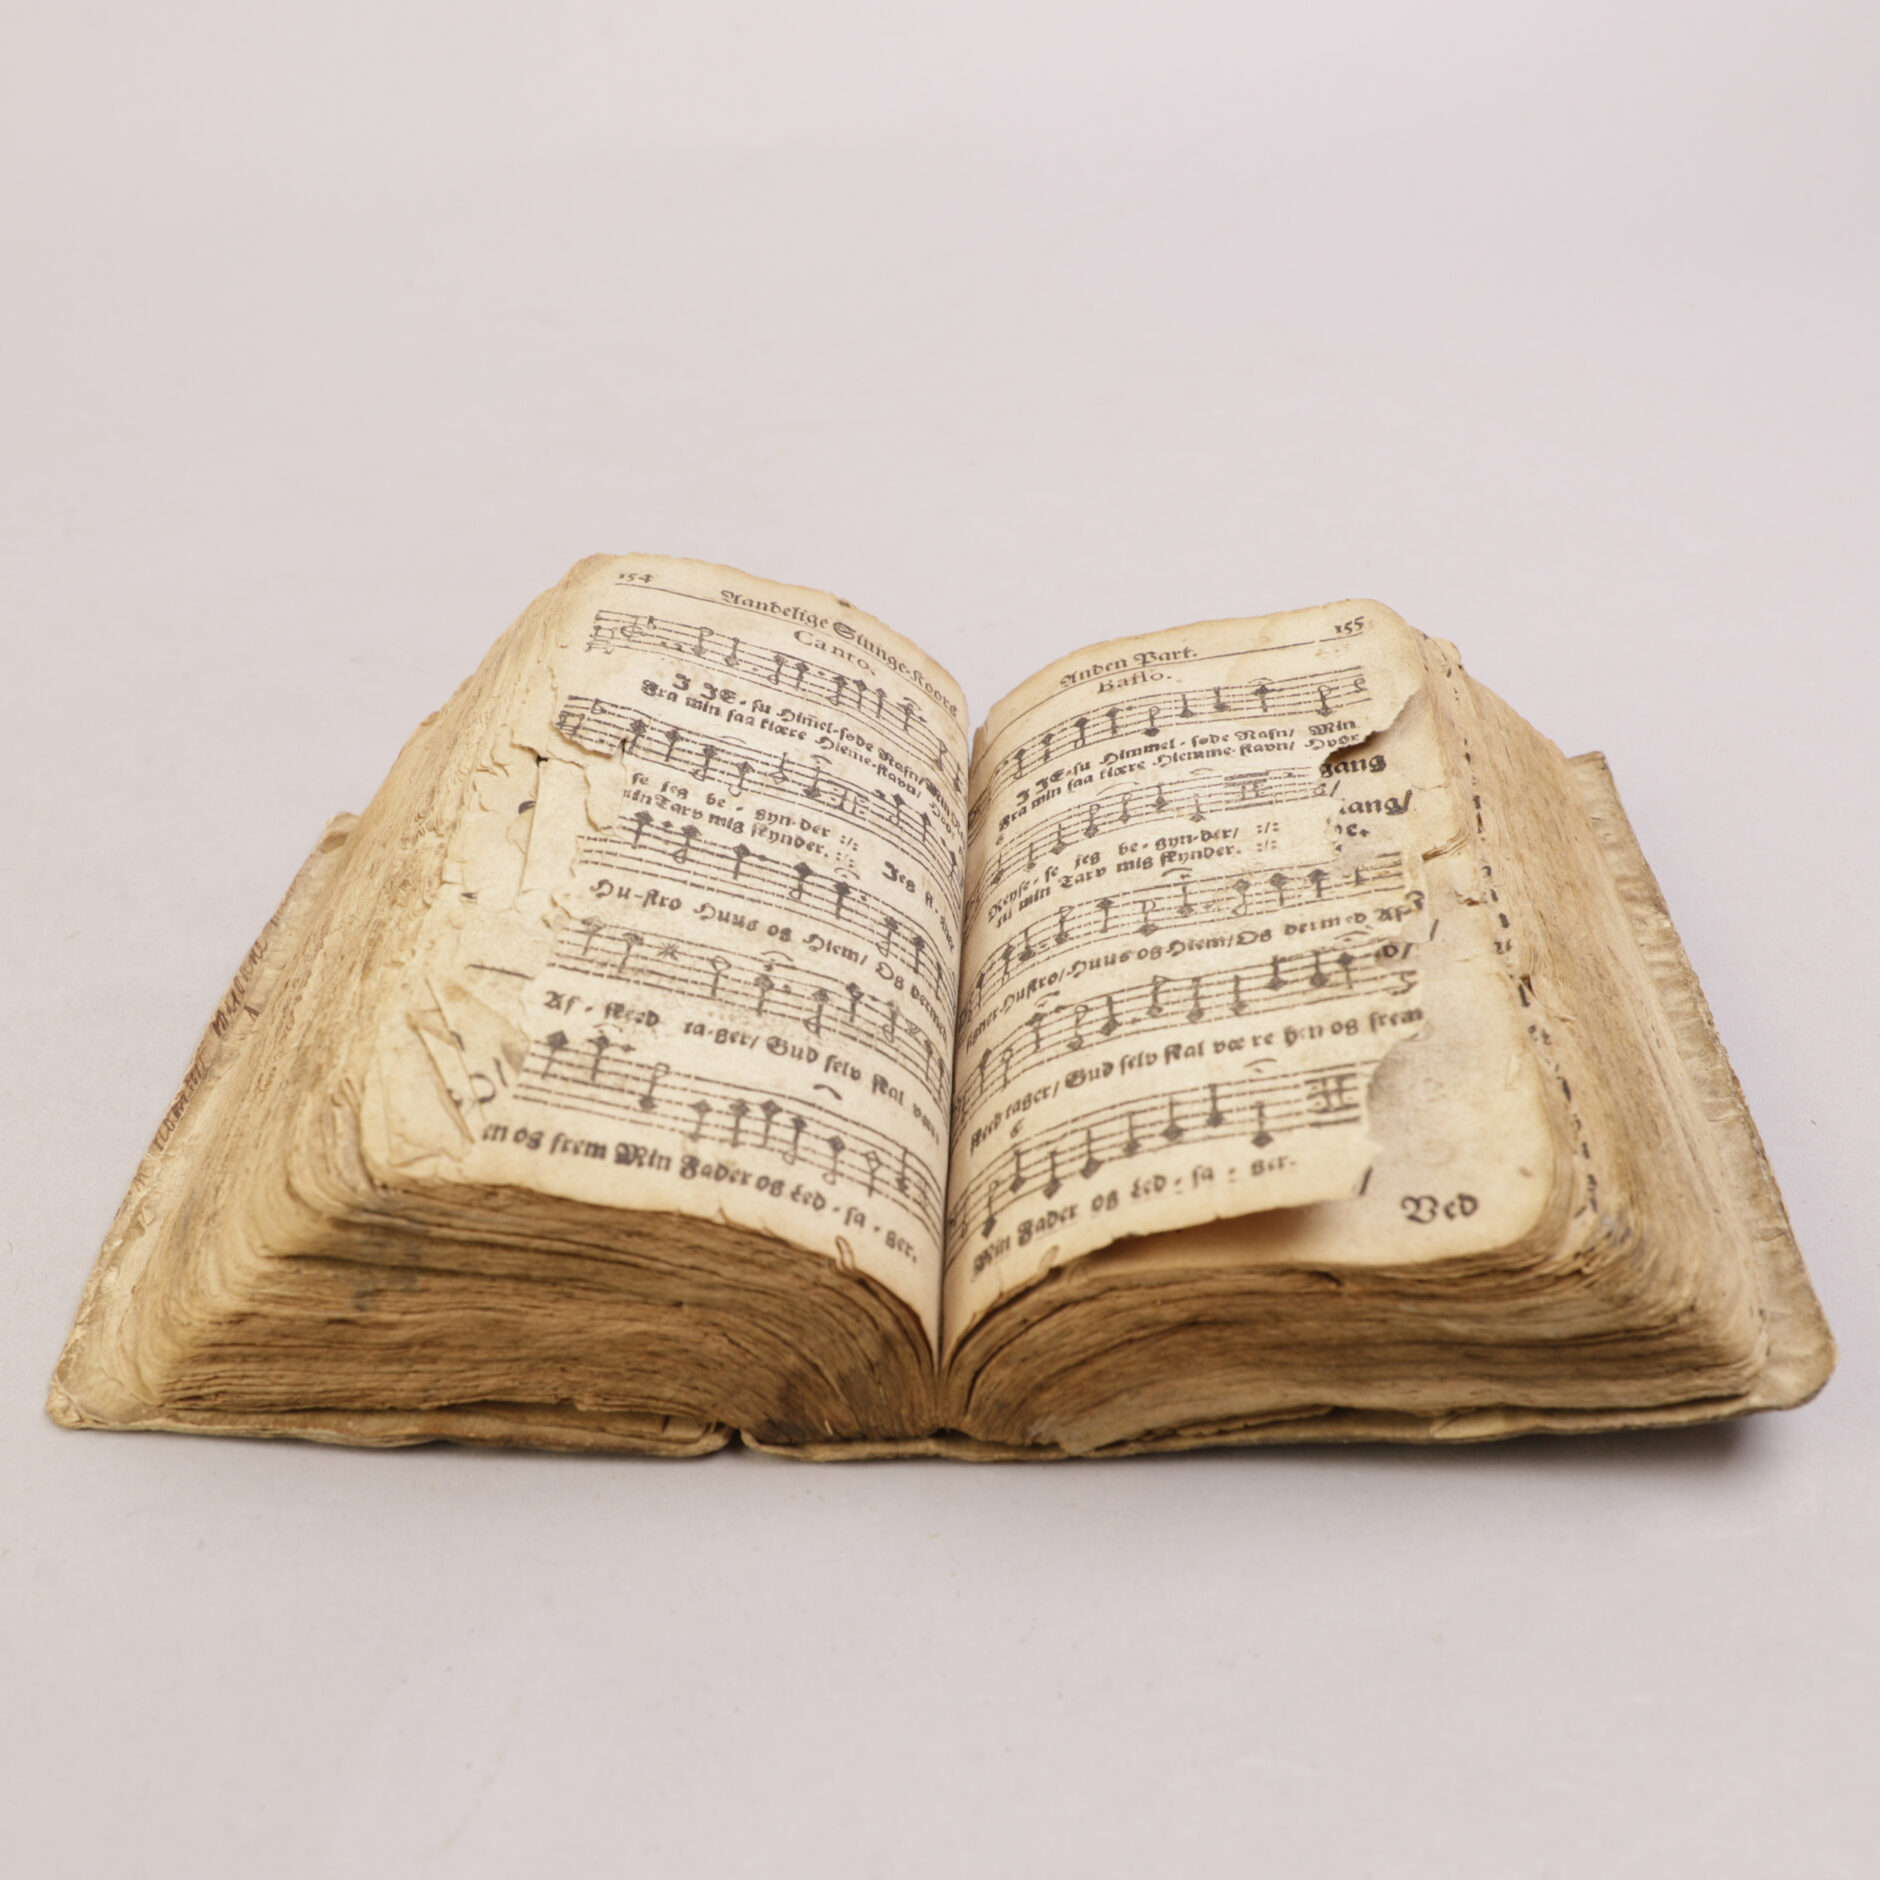 154
Aandelige Siunge-Koors
Canto.
I JE-su Himel-søde Nafn/
Fra min saa kiære Hieme-stavn/
se jeg be-gyn-der :/:
min Tarv mig skynder. :/: Jeg
Hu-stro Huus og Hiem/ Og dermed
Af-skeed ta-ger/ Gud selv skal
en og frem Min Fader og Led-sa-ger.
155
Anden Part.
Basso.
I JE-su Himmel-søde Nafn/ Min
Fra min saa kiære Hiemme-stavn/ Hvor
gang
gang/
Reyse-se jeg be-gyn-der/ :/:
min Tarv mig skynder. :/:
Hustro/Huus og Hiem/Og dermed Af-
skeed tager/ Gud selv skal være hen og frem
Min Fader og Led-sa-ger.
Ved